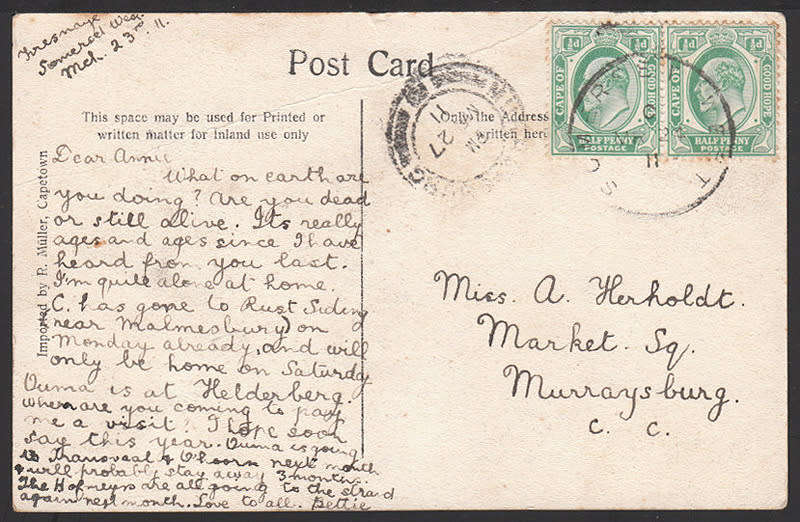 Fresnaye
Somerset West
Mch. 23rd 11.
Post Card
This space may be used for Printed or
written matter for Inland use only
Only the Address
written here
Imported by R. Müller, Capetown
Dear Annie
What on earth are
you doing? Are you dead
or still alive. Its really
ages and ages since I have
heard from you last.
I'm quite alone at home.
C. has gone to Rust Siding
near Malmesbury) on
Monday already, and will
only be home on Saturday
Ouma is at Helderberg.
When are you coming to pay
me a visit? I hope soon
say this year. Ouma is going
to Transvaal & next month
& will probably stay away 3 months.
The Hofmeyrs are all going to the strand
again next month. Love to all. Bettie
Miss. A. Herholdt.
Market. Sq.
Murraysburg.
C. C.
½d ½d
CAPE OF GOOD HOPE
HALF PENNY
POSTAGE
½d ½d
CAPE OF GOOD HOPE
HALF PENNY
POSTAGE
27
11
SOMERSET WEST
11